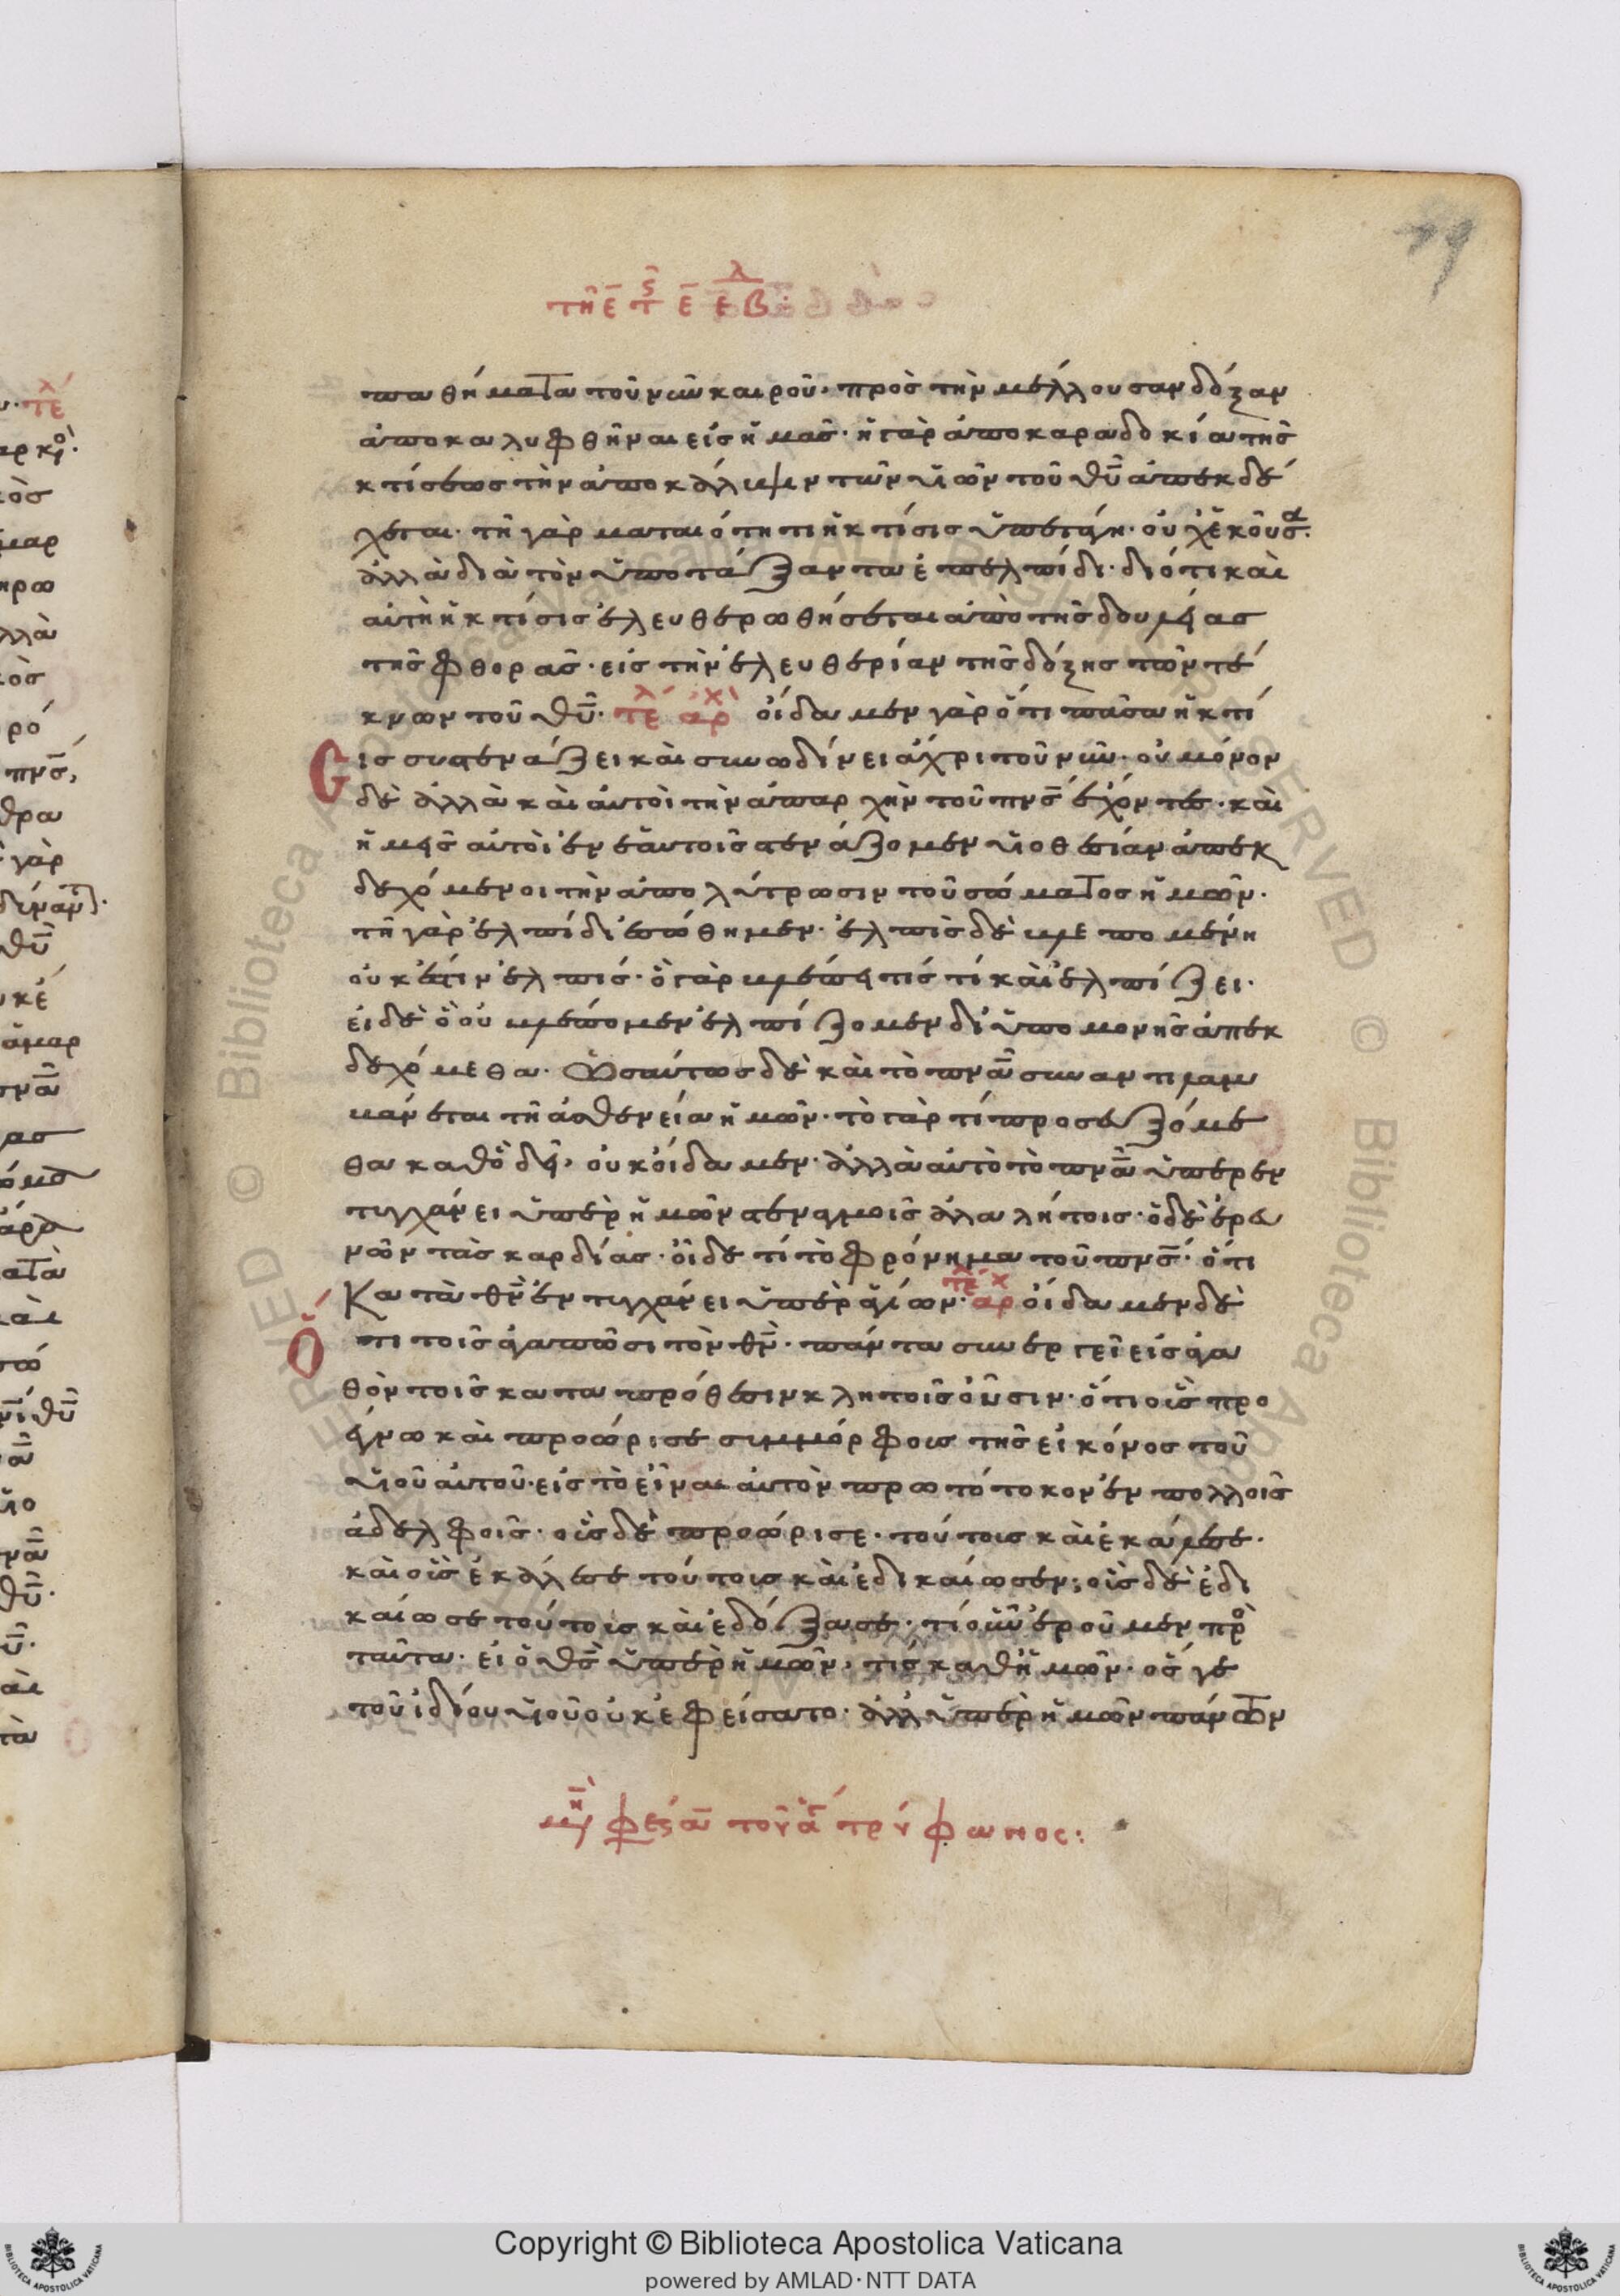 19
τῆ ε̄ τ ς ε̄ ε β λ
παθήματα τοῦ νῦν καιροῦ, πρὸς τὴν μέλλουσαν δόξαν
ἀποκαλυφθῆναι εἰς ἡμᾶς· ἡ γὰρ ἀποκαραδοκία τῆς
κτίσεως τὴν ἀποκάλυψιν τῶν υἱῶν τοῦ θῦ ἀπεκδέ
χεται· τῆ γὰρ ματαιότητι ἡ κτίσις ὑπετάγη· οὐχ ἑκοῦσα·
ἀλλὰ διὰ τὸν ὑποτάξαντα ἐπ ελπίδι· διότι καὶ
αὐτὴ ἡ κτίσις ἐλευθερωθήσεται ἀπὸ τῆς δουλείας
τῆς φθορᾶς· εἰς τὴν ἐλευθερίαν τῆς δόξης τῶν τέ
κνων τοῦ θῦ· τελ αρχ οἴδαμεν γὰρ ὅτι πᾶσα ἡ κτί
Cις συστενάζει καὶ συνωδίνει ἄχρι τοῦ νῦν· οὐ μόνον
δὲ ἀλλὰ καὶ αὐτοὶ τὴν ἀπαρχὴν τοῦ πνς ἔχοντες· καὶ
ἡμεῖς αὐτοὶ ἐν ἑαυτοῖς στενάζομεν υἱοθεσίαν ἀπεκ
δεχόμενοι τὴν ἀπολύτρωσιν τοῦ σώματος ἡμῶν·
τῆ γὰρ ἐλπίδι ἐσώθημεν· ἐλπὶς δὲ βλεπομένη
οὐκ ἔστιν ἐλπίς· ὃ γὰρ βλέπει τίς τί καὶ ἐλπίζει·
εἰ δὲ ὃ οὐ βλέπομεν ἐλπίζομεν δι ὑπομονῆς ἀπεκ
δεχόμεθα· Ὡσαύτως δὲ καὶ τὸ πνᾶ συναντιλαμ
βάνεται τῆ ἀσθενεία ἡμῶν· τὸ γὰρ τί προσευξόμε
θα καθὸ δεῖ, οὐκ οἴδαμεν· ἀλλὰ αὐτὸ τὸ πνᾶ ὑπερεν
τυγχάνει ὑπὲρ ἡμῶν στεναγμοῖς ἀλαλήτοις· ὁ δὲ ἐρευ
νῶν τὰς καρδίας· οἶδε τί τὸ φρόνημα τοῦ πνς· ὅτι
Κατὰ θν ἐντυγχάνει ὑπὲρ ἁγίων· τελ αρχ οἴδαμεν δὲ
Ὅτι τοῖς ἀγαπῶσι τὸν θν· πάντα συνεργεῖ εἰς ἀγα
θὸν τοῖς κατα πρόθεσιν κλητοῖς οὖσιν· ὅτι οὓς προ
έγνω καὶ προώρισε συμμόρφους τῆς εἰκόνος τοῦ
υἱοῦ αὐτοῦ· εἰς τὸ εἶναι αὐτὸν πρωτότοκον ἐν πολλοῖς
ἀδελφοῖς· οὓς δὲ προώρισε· τούτους καὶ ἐκάλεσε·
καὶ οὓς ἐκάλεσε τούτους καὶ ἐδικαίωσεν· οὓς δὲ ἐδι
καίωσε τούτους καὶ ἐδόξασε· τί οὖν ἐροῦμεν πρὸ
ταῦτα· εἰ ὁ θς ὑπὲρ ἡμῶν, τίς καθ ἡμῶν· ὅς γε
τοῦ ἰδίου υἱοῦ οὐκ ἐφείσατο· ἀλλ ὑπὲρ ἡμῶν πάντων
τοῦ ἁγ τρύφωνος:
Copyright © Biblioteca Apostolica Vaticana
powered by AMLAD·NTT DATA